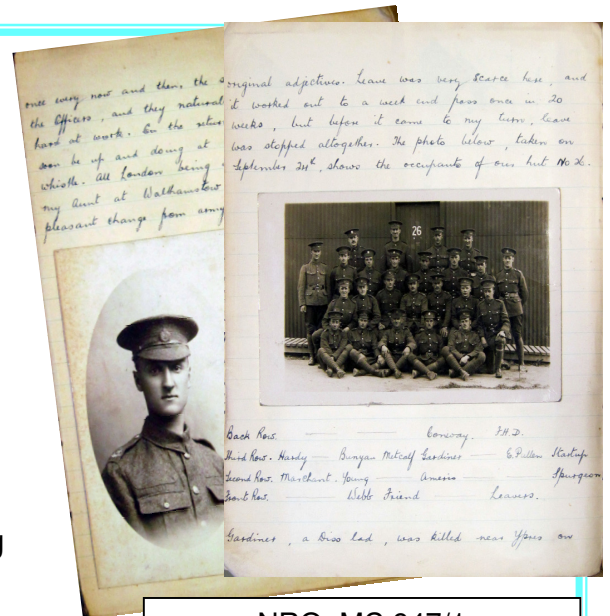 once every now and then, the s
the Officers, and they natural
hard at work. On the return
soon be up and doing at
whistle. All London being
my Aunt at Walthamstow
pleasant change from army
original adjectives. Leave was very scarce here, and
it worked out to a week end pass once in 20
weeks, but before it came to my turn, leave
was stopped altogether. The photo below, taken on
September 24th, shows the occupants of our hut No 26.
26
Back Row. Conway. F.H.D.
Third Row. Hardy Bunyan Metcalf Gardiner E. Pullen Startup
Second Row. Marchant. Young Amerss Spurgeon
Front Row. Webb Friend Leavers.
Gardiner, a Diss lad, was killed near Ypres on
g